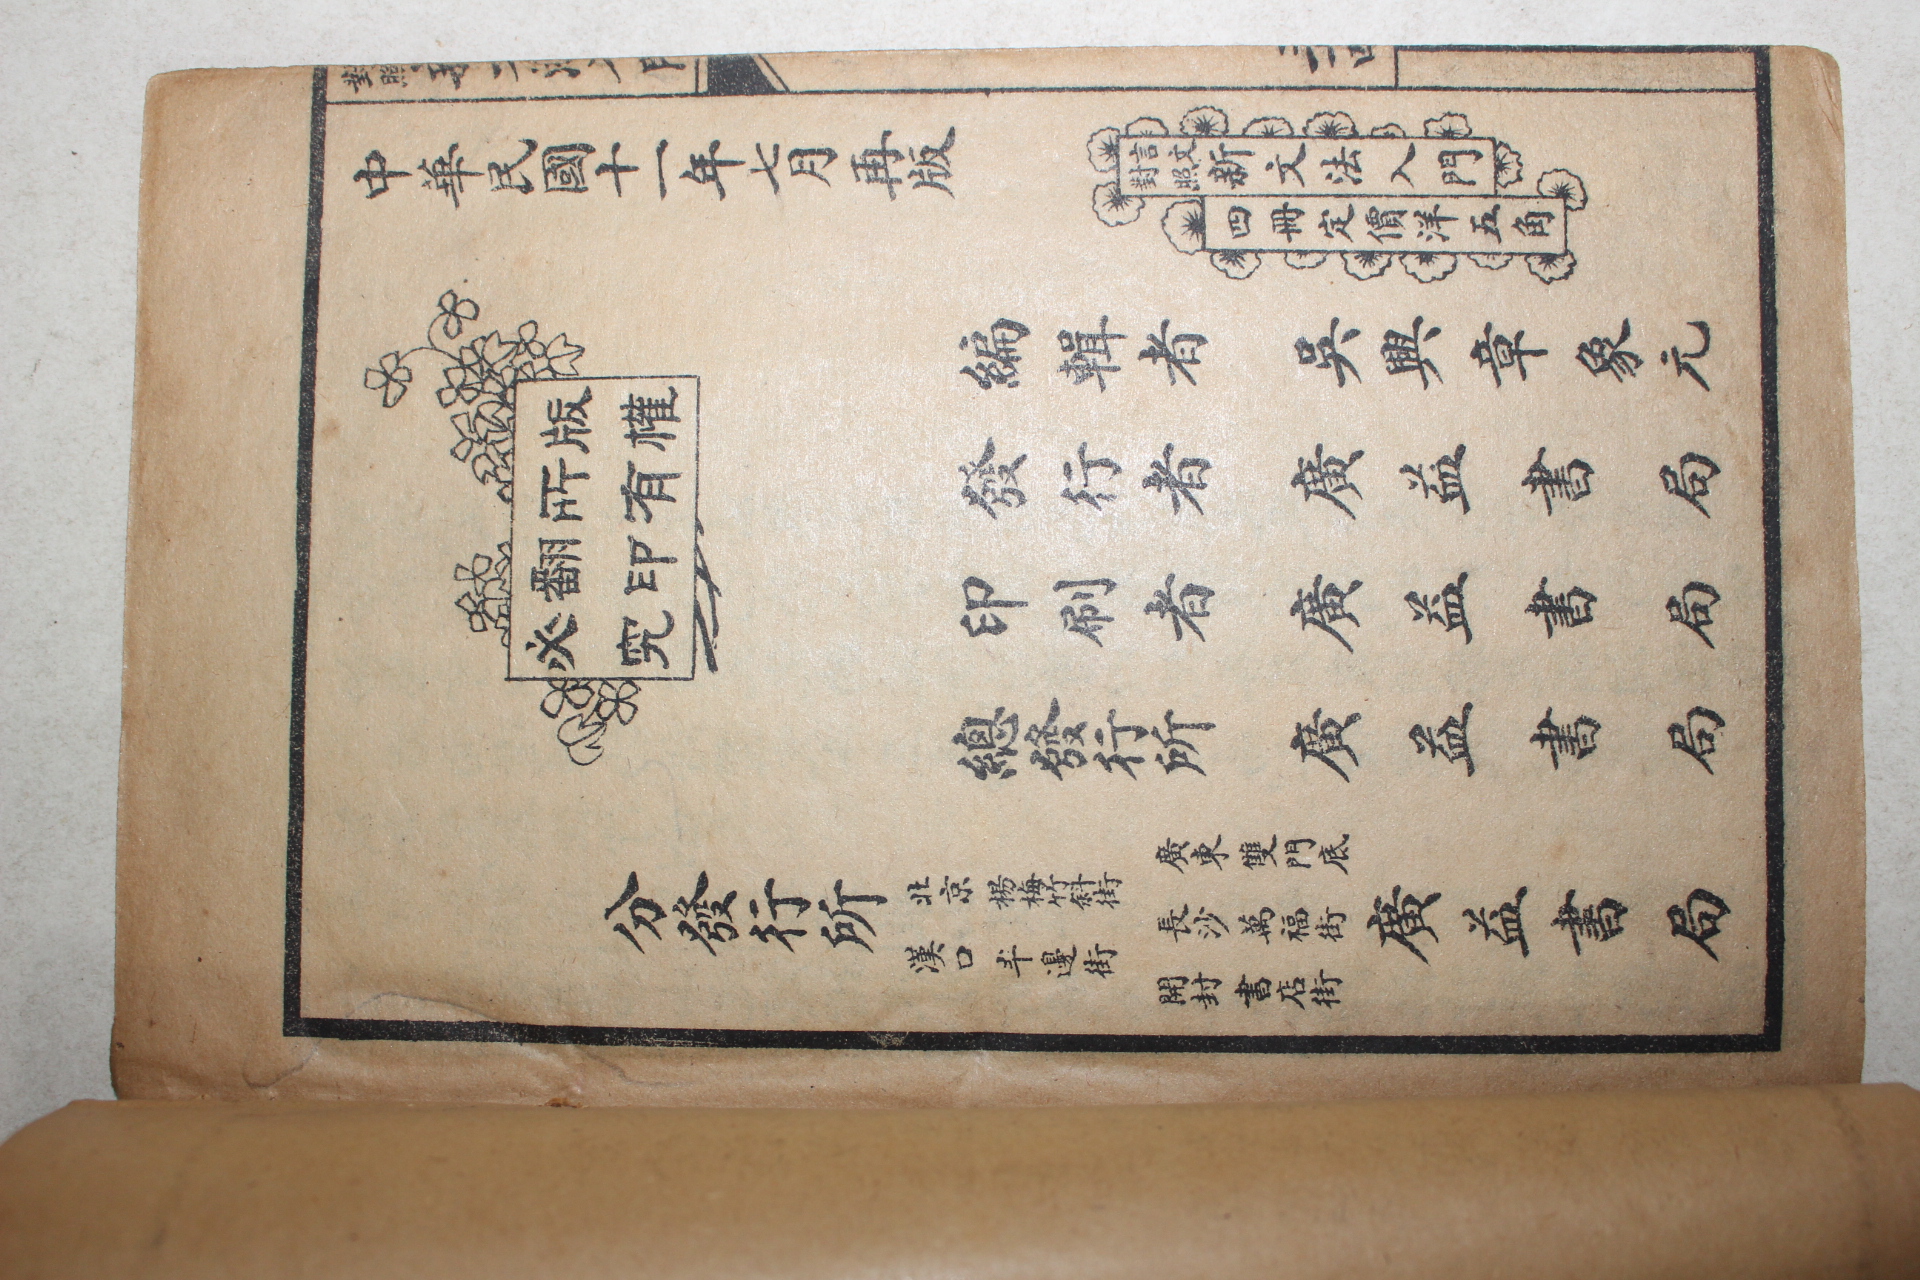 對照
中華民國十一年七月再版
言文對照新文法入門
四冊定價洋五角
版權
所有
翻印
必究
編輯者 吳興章象元
發行者 廣益書局
印刷者 廣益書局
總發行所 廣益書局
分發行所
北京楊梅竹斜街
漢口半邊街
廣東雙門底
長沙萬福街
開封書店街
廣益書局